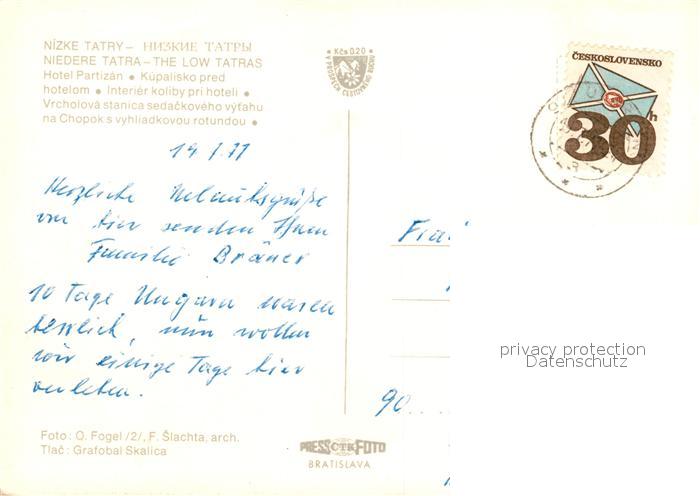 NÍZKE TATRY – НИЗКИЕ ТАТРЫ
NIEDERE TATRA – THE LOW TATRAS
Hotel Partizán • Kúpalisko pred
hotelom • Interiér koliby pri hoteli •
Vrcholová stanica sedačkového výťahu
na Chopok s vyhliadkovou rotundou •
Kčs 0,20
V PROSPECH CESTOVNÉHO RUCHU
ČESKOSLOVENSKO
30h
Herzliche Urlaubsgrüße
von hier senden Ihnen
Familie Bräuer
10 Tage Ungarn waren
herrlich, nun wollen
wir einige Tage hier
verleben.
90....
privacy protection
Datenschutz
Foto: O. Fogel /2/, F. Šlachta, arch.
Tlač: Grafobal Skalica
PRESS ČTK FOTO
BRATISLAVA